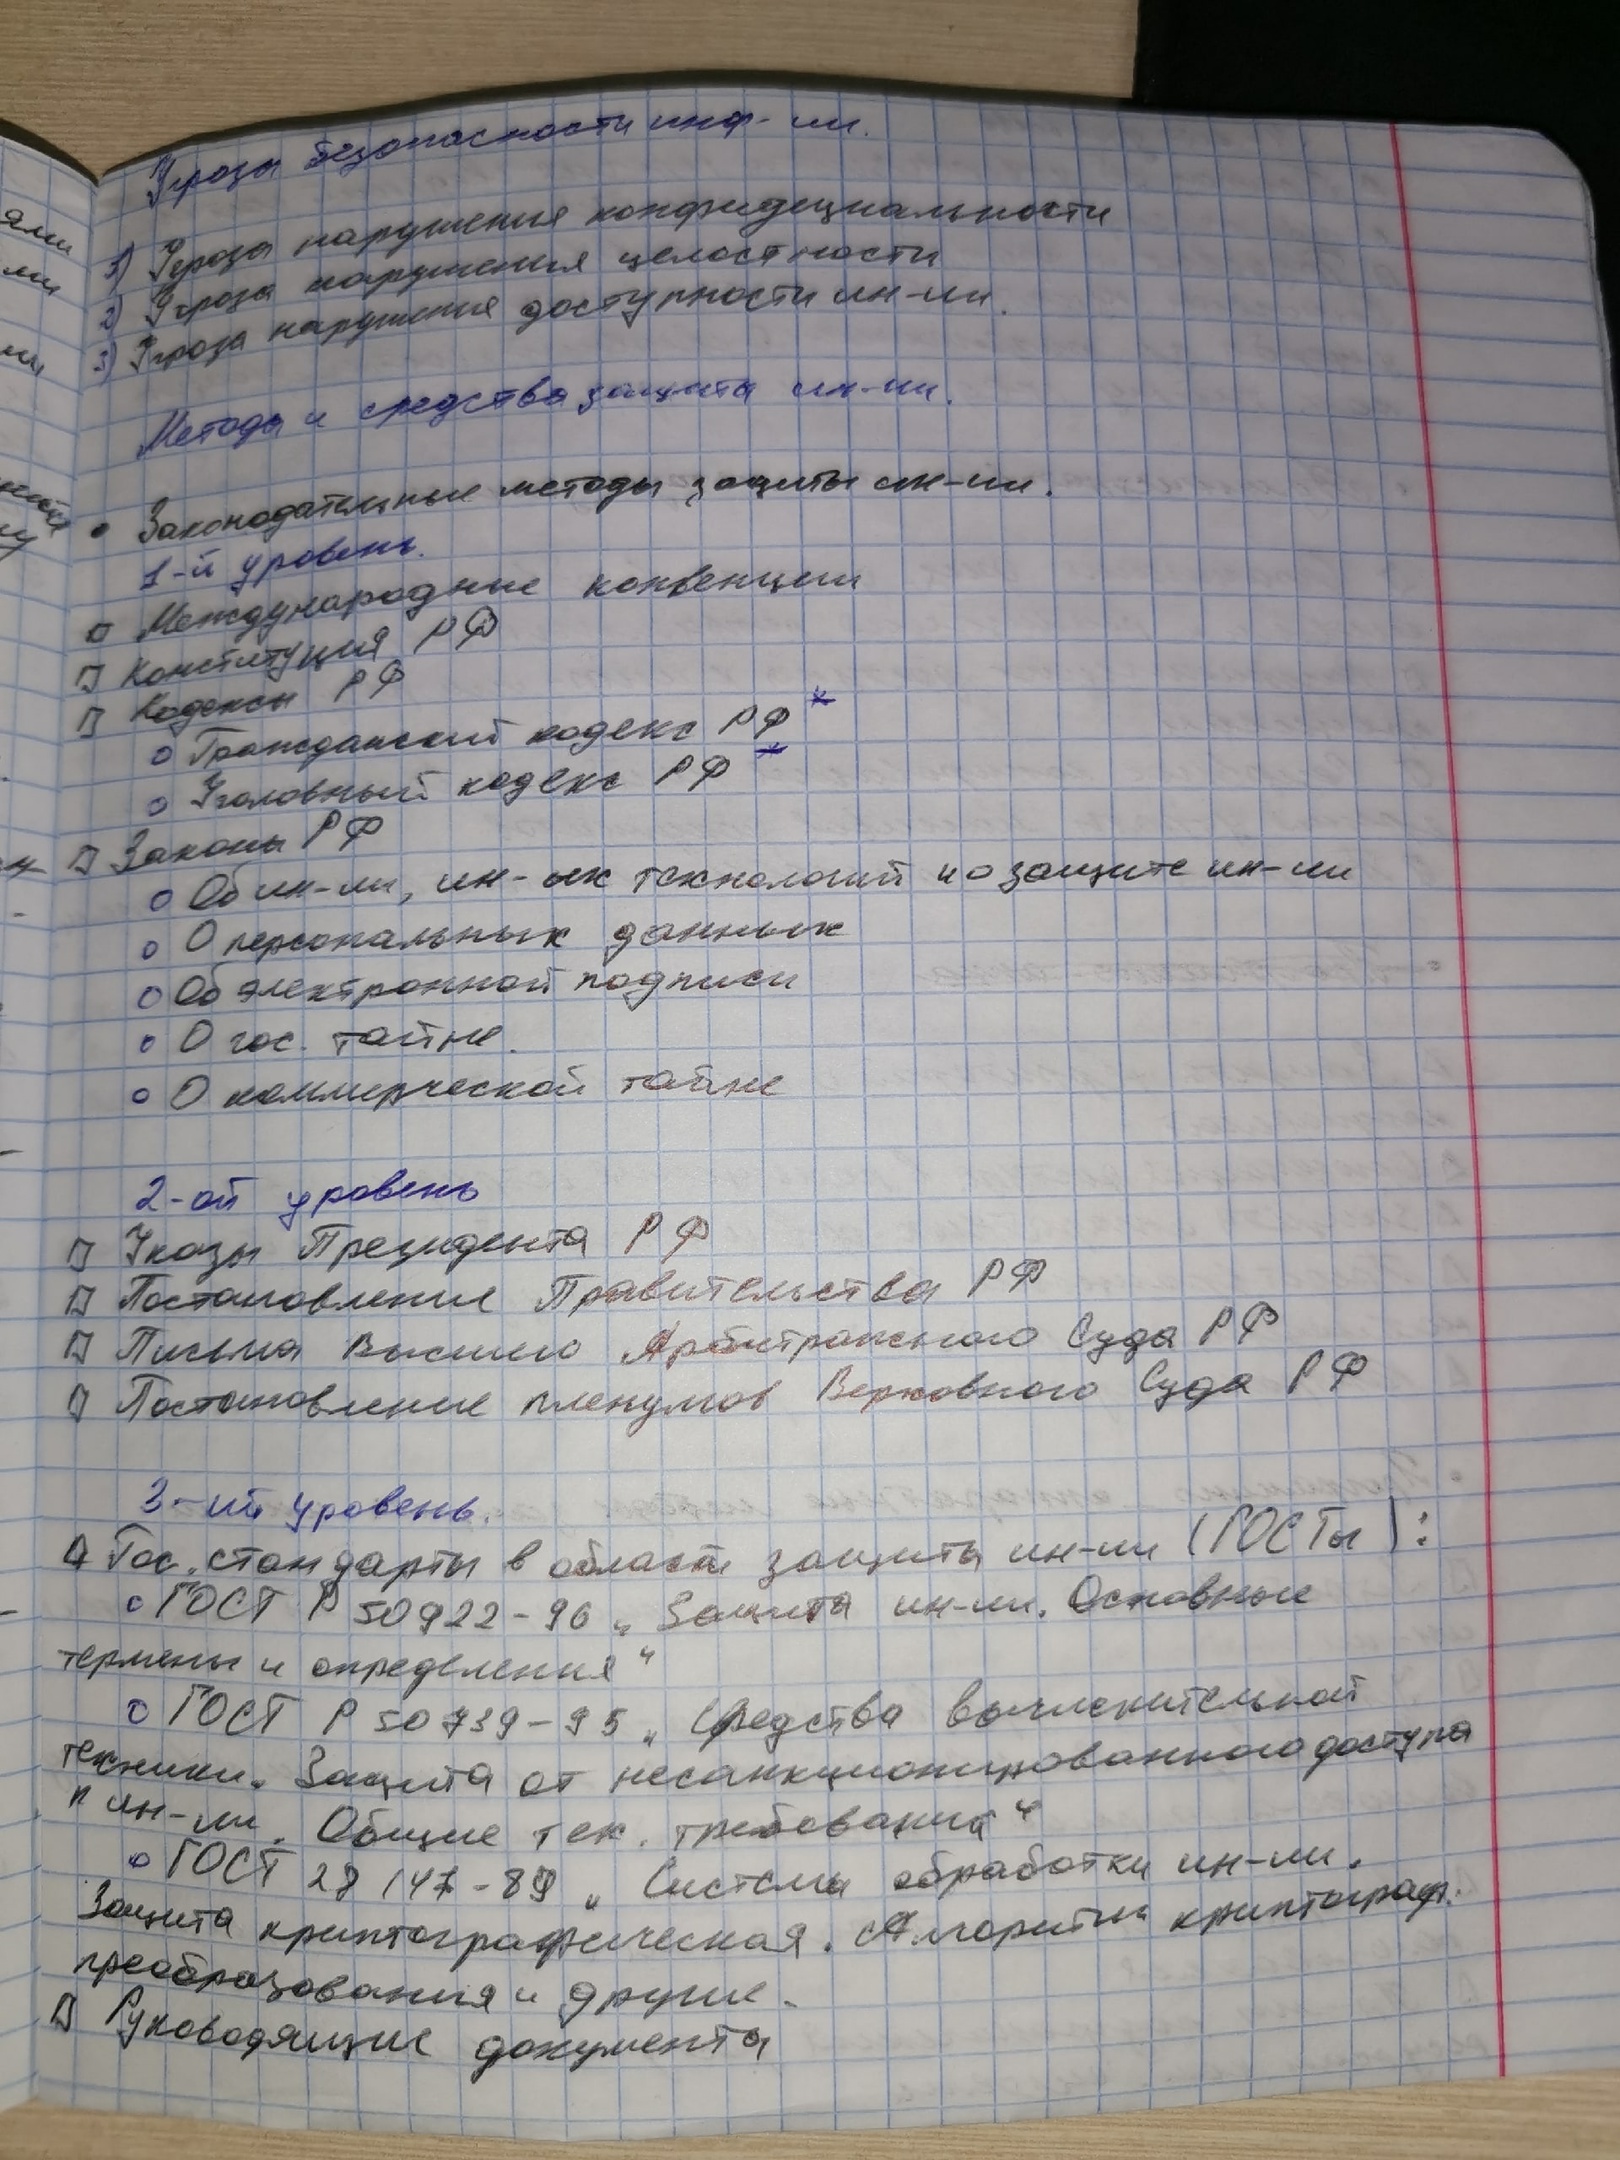 Угрозы безопасности инф-ии.
1) Угроза нарушения конфидециальности
2) Угроза нарушения целостности
3) Угроза нарушения доступности ин-ии.
Методы и средства защита ин-ии.
• Законодательные методы защиты ин-ии.
1-й уровень.
□ Международные конвенции
□ Конституция РФ
□ Кодексы РФ
○ Гражданский кодекс РФ *
○ Уголовный кодекс РФ *
□ Законы РФ
○ Об ин-ии, ин-ых технологий и о защите ин-ии
○ О персональных данных
○ Об электронной подписи
○ О гос. тайне.
○ О коммерческой тайне
2-ой уровень
□ Указы Президента РФ
□ Постановление Правительства РФ
□ Письма Высшего Арбитражного Суда РФ
□ Постановление пленумов Верховного Суда РФ
3-ий уровень.
□ Гос. стандарты в области защиты ин-ии (ГОСТы):
○ ГОСТ Р 50922-96 „Защита ин-ии. Основные
термены и определения“
○ ГОСТ Р 50739-95 „Средства вычислительной
техники. Защита от несанкционированного доступа
к ин-ии. Общие тех. требования“
○ ГОСТ 28147-89 „Система обработки ин-ии.
Защита криптографическая. Алгоритм криптограф.
преобразования и другие.
□ Руководящие документа
ями
ии